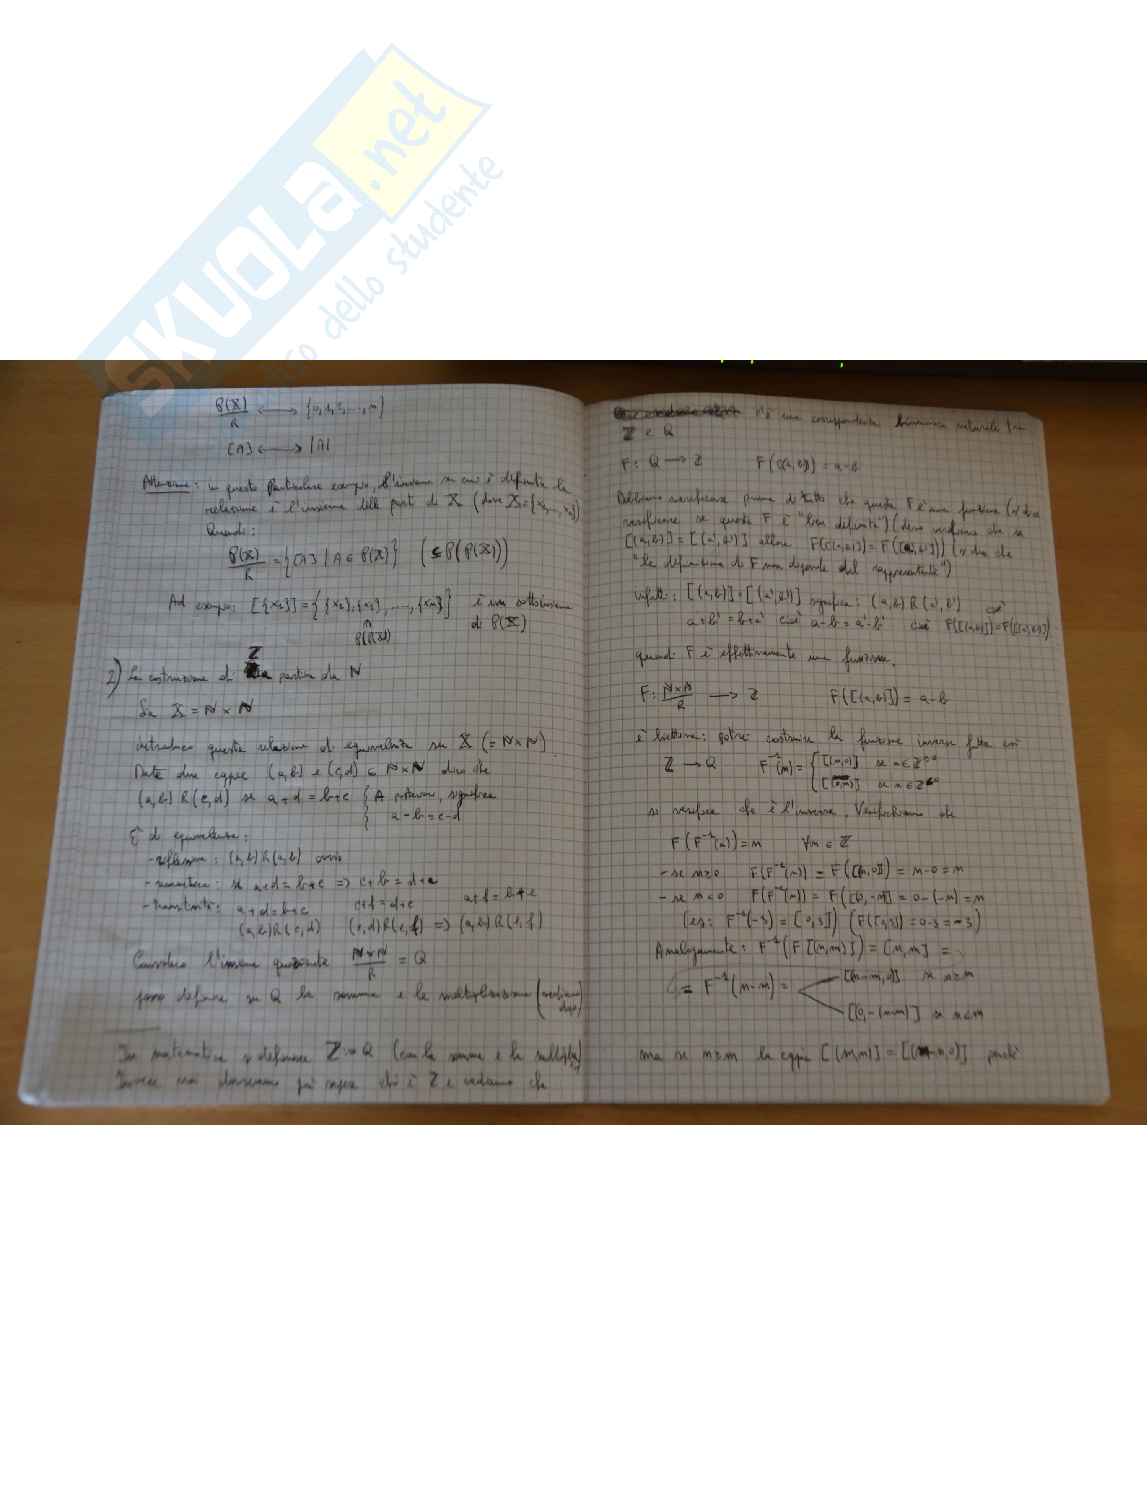 SKUOLA.net
dello studente
P(X)/R ⟷ {0,1,2,...,n}
[A] ⟷ |A|
Attenzione: in questo particolare esempio, l'insieme su cui è definita la
relazione è l'insieme delle parti di X (dove X={x₁,...,xₙ})
Quindi:
P(X)/R = {[A] | A ∈ P(X)} (⊆ P(P(X)))
Ad esempio: [{x₁}] = {{x₁},{x₂},....,{xₙ}} è un sottoinsieme
P(P(X)) di P(X)
2) La costruzione di Z a partire da N
Sia X = N × N
introduco questa relazione di equivalenza su X (= N×N)
Date due coppie (a,b) e (c,d) ∈ N×N dico che
(a,b) R (c,d) se a+d = b+c { A posteriori, significa
a-b = c-d
È di equivalenza:
- riflessiva: (a,b) R (a,b) ovvio
- simmetrica: se a+d = b+c => c+b = d+a
- transitività: a+d = b+c c+f = d+e a+f = b+e
(a,b) R (c,d) (c,d) R (e,f) => (a,b) R (e,f)
Considero l'insieme quoziente N×N/R = Q
posso definire su Q la somma e la moltiplicazione (vediamo dopo)
In matematica si definisce Z := Q (con la somma e la moltiplic.)
Invece noi dovremmo già sapere chi è Z e vediamo che
c'è una corrispondenza biunivoca naturale fra
Z e Q
F: Q ⟶ Z F([(a,b)]) = a-b
Dobbiamo verificare prima di tutto che questa F è una funzione (si dice
verificare se questa F è "ben definita") (devo verificare che se
[(a,b)] = [(a',b')] allora F([(a,b)]) = F([(a',b')])) (si dice che
"la definizione di F non dipende dal rappresentante")
infatti: [(a,b)] = [(a',b')] significa: (a,b) R (a',b') cioè
a+b' = b+a' cioè a-b = a'-b' cioè F([(a,b)]) = F([(a',b')])
quindi F è effettivamente una funzione.
F: N×N/R ⟶ Z F([(a,b)]) = a-b
è biettiva: potrei costruire la funzione inversa fatta così
Z → Q F⁻¹(n) = { [(n,0)] se n ∈ Z≥0
[(0,-n)] se n ∈ Z<0
si verifica che è l'inversa. Verifichiamo che
F(F⁻¹(n)) = n ∀n ∈ Z
- se n≥0 F(F⁻¹(n)) = F([(n,0)]) = n-0 = n
- se n<0 F(F⁻¹(n)) = F([0,-n]) = 0-(-n) = n
(es: F⁻¹(-3) = [0,3]) (F([0,3]) = 0-3 = -3)
Analogamente: F⁻¹(F[(n,m)]) = [n,m] =
= F⁻¹(n-m) = [(n-m,0)] se n≥m
[(0,-(n-m))] se n<m
ma se n≥m la coppia [(n,m)] = [(n-m,0)] perché